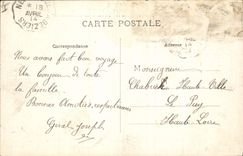 18
AVRIL
14
CARTE POSTALE
Correspondance
Adresse
Nous avons fait bon voyage
Un bonjour de toute
la famille.
Bonnes Amitiés
Gural Joseph
Monseigneur
Haute Ville
Le Puy
Haute Loire